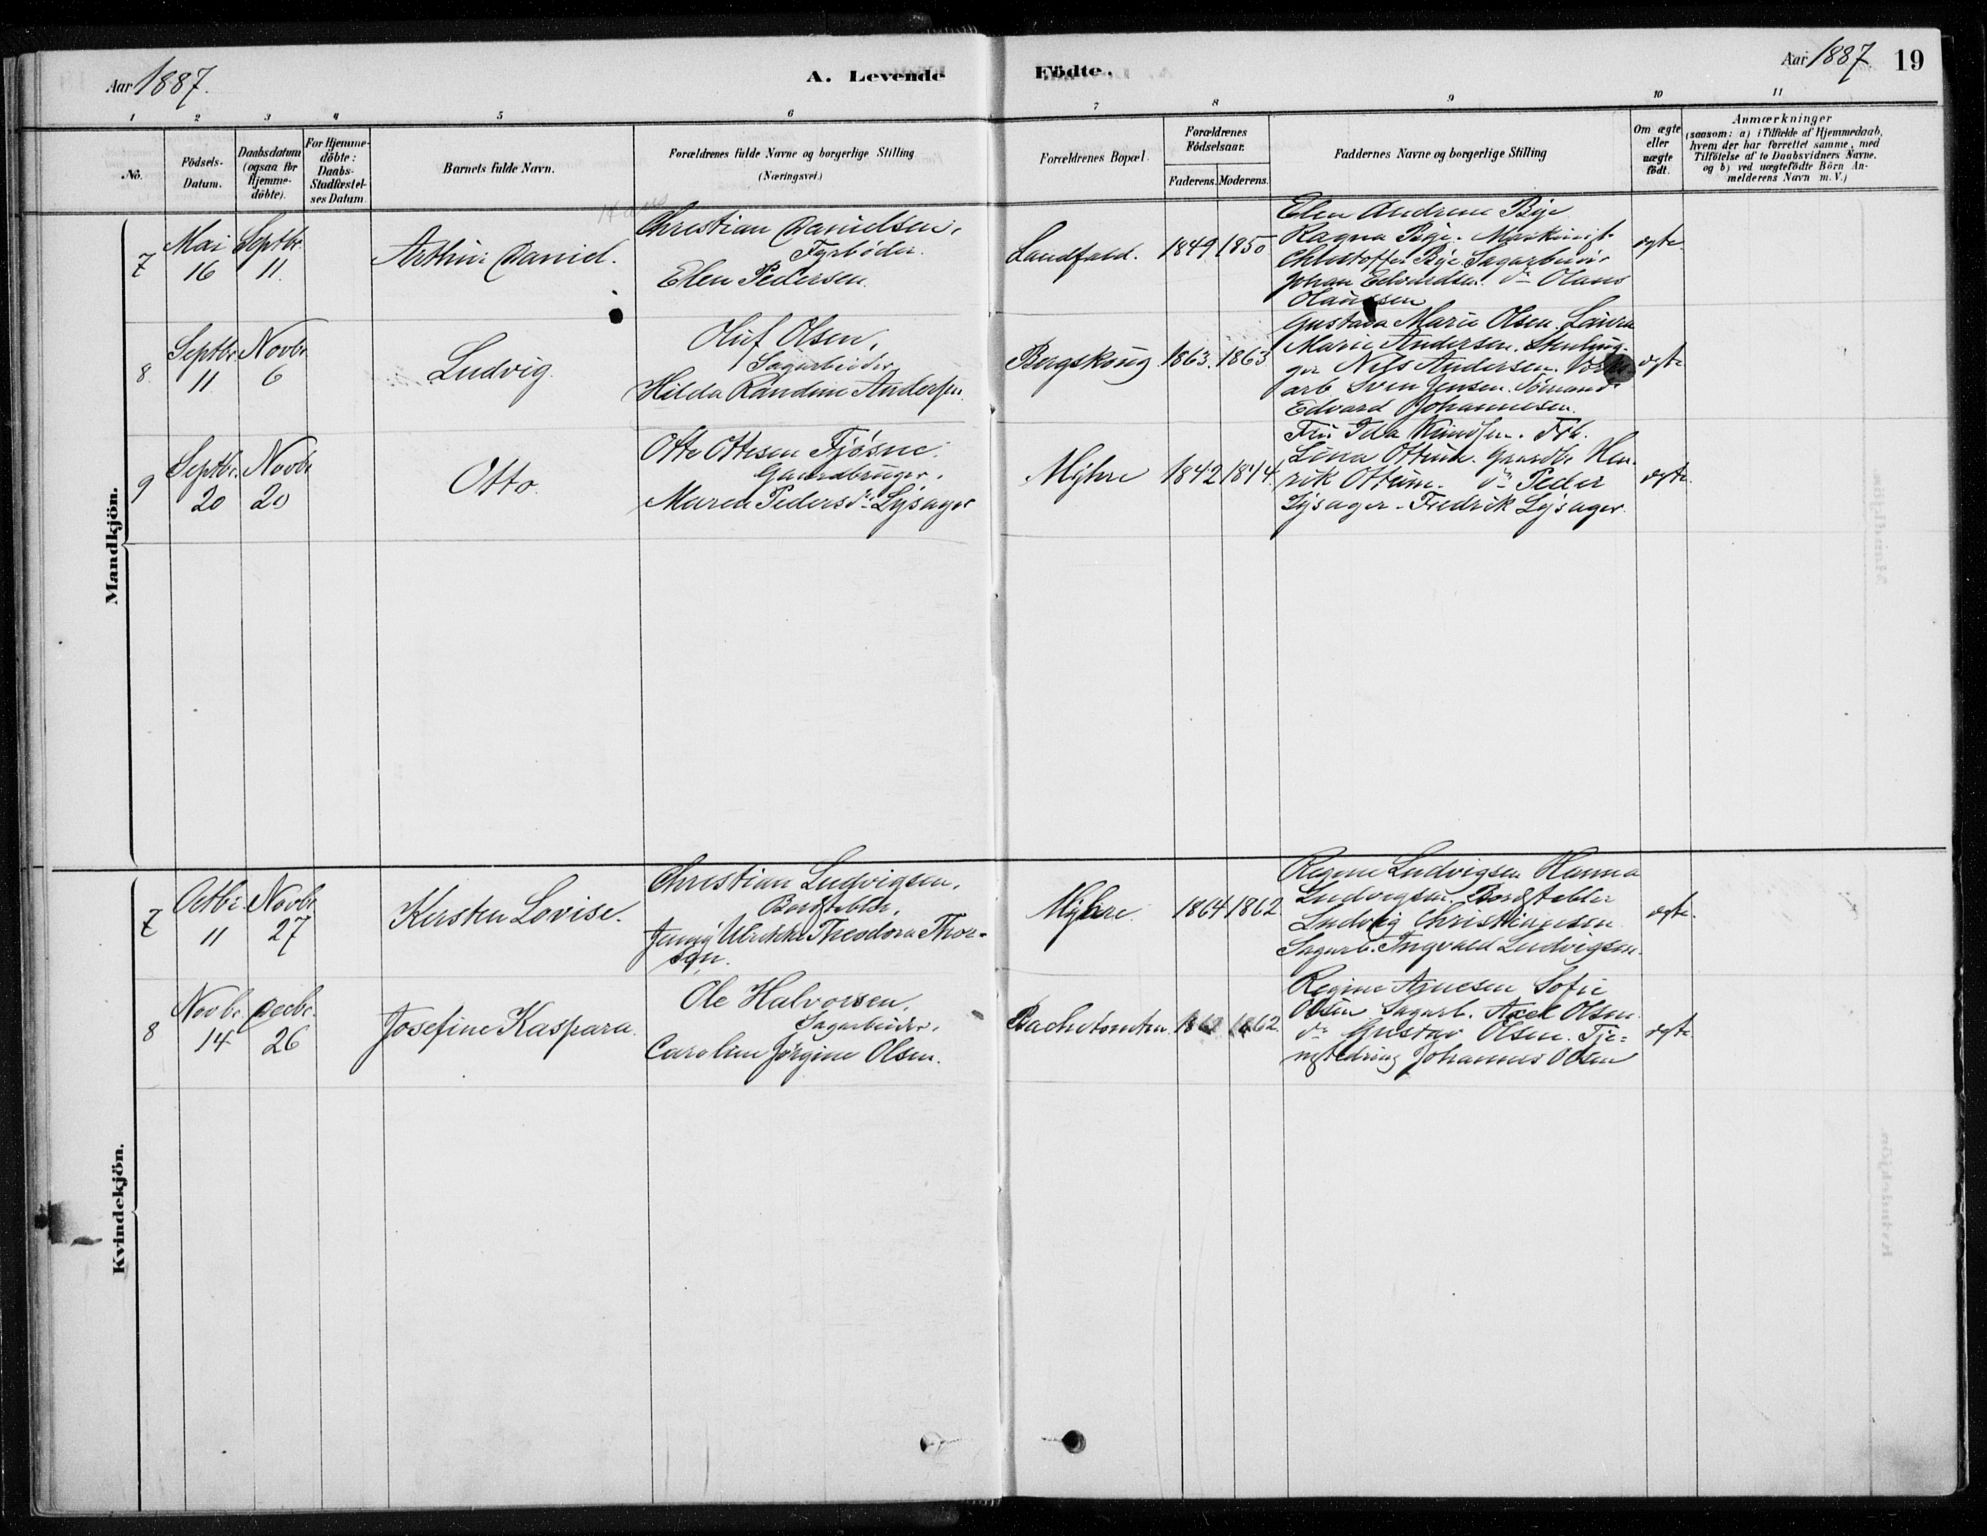 Aar 1887.
A. Levende
Födte.
Aar 1887
19
1 2 3 4 5 6 7 8 9 10 11
No.
Födsels-
Datum.
Daabsdatum
(ogsaa for
Hjemme-
döbte).
For Hjemme-
döbte:
Daabs-
Stadfæstel-
ses Datum.
Barnets fulde Navn.
Forældrenes fulde Navne og borgerlige Stilling
(Næringsvei.)
Forældrenes Bopæl.
Forældrenes
Födselsaar.
Faderens. Moderens.
Faddernes Navne og borgerlige Stilling
Om ægte
eller
uægte
födt.
Anmærkninger
(saasom: a) i Tilfælde af Hjemmedaab,
hvem der har forrettet samme, med
Tilföielse af to Daabsvidners Navne,
og b) ved uægtefödte Börn An-
melderens Navn m. V.)
Mandkjön.
7
Mai
16
Septbr.
11.
Arthur Daniel.
Christian Danielsen,
Fyrbøder.
Elen Pedersen.
Landfald.
1849
1850
Elen Andrene Bye
Ragna Bye. Maskinist
Christoffer Bye. Sagarbeider
Johan Edvardsen. do Olaus
Olaussen
ægte.
8
Septbr.
11
Novbr.
6
Ludvig.
Oluf Olsen,
Sagarbeider
Hilda Randine Andersen.
Bergskoug
1863.
1863
Gustava Marie Olsen. Laura
Marie Andersen. Stenhug-
ger Nils Andersen.
arb Sven Jensen. Sömand
Edvard Johannesen.
ægte
9
Septbr.
20
Novbr
20
Otto.
Otto Ottesen Fjøsne.
Gaardbruger.
Maren Pedersdr. Lysager
Myhre
1842
1844
Fru Ida Knudsen. Frk.
Lina Ottum. Gaardbr Hen-
rik Ottum. do Peder
Lysager. Fredrik Lysager.
ægte.
Kvindekjön.
7
Octbr.
11
Novbr
27
Kirsten Lovise.
Christian Ludvigsen,
Bordstabler,
Jenny Ulrikke Theodora Thor-
sen.
Myhre.
1864
1862
Regine Ludvigsen Hanna
Ludvigsen. Bordstabler
Ludvig Christiansen
Sagarb. Ingvald Ludvigsen.
ægte.
8
Novbr.
14
Decbr.
26
Josefine Kaspara
Ole Halvorsen,
Sagarbeider,
Caroline Jørgine Olsen.
Bachetomten.
1862
Regine Arnesen Sofie
Olsen Sagarb. Axel Olsen
do Gustav Olsen. Tje-
nestedreng Johannes Olsen
ægte.